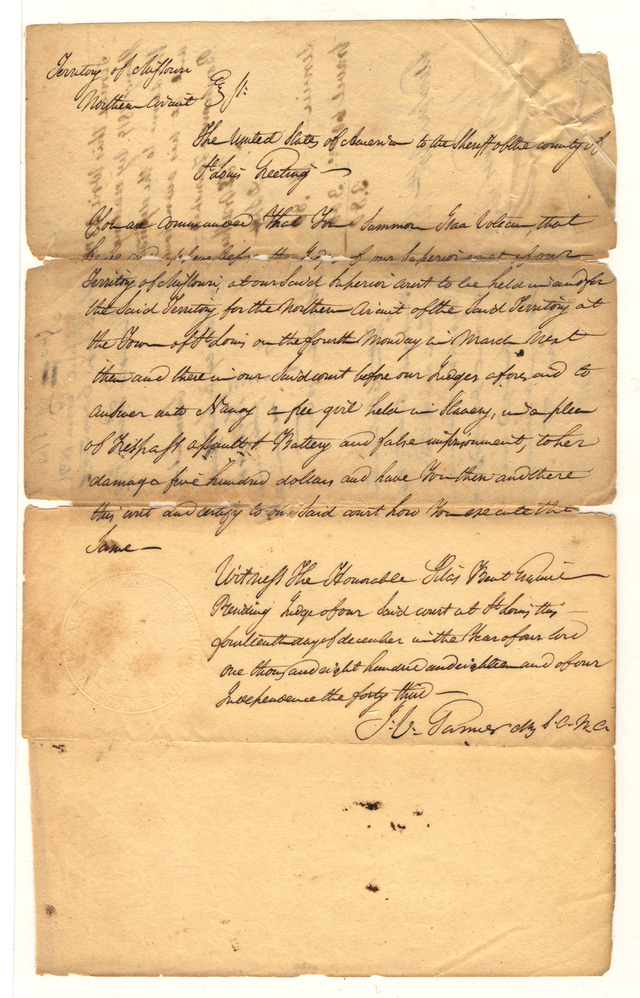 Territory of Missouri
Northern Circuit
The United States of America to the Sheriff of the county of
St Louis Greeting
You are commanded that You Summon that
he be and appear before the Judges of our Superior court of our
Territory of Missouri, at our Said Superior court to be held in and for
the Said Territory for the Northern Circuit of the Said Territory at
the Town of St Louis on the fourth Monday in March next
then and there in our Said court before our Judges aforesaid to
answer unto Nancy a free girl held in Slavery, in a plea
of Trespass assault & Battery and false imprisonment, to her
damage five hundred dollars and have You then and there
this writ and certify to our Said court how You execute the
Same
Witness The Honorable Silas Bent Esquire
Presiding Judge of our Said court at St Louis this
fourteenth day of december in the Year of our lord
one thousand eight hundred and eighteen and of our
Independence the forty third
J. V. Garnier clk S. C. N. C.